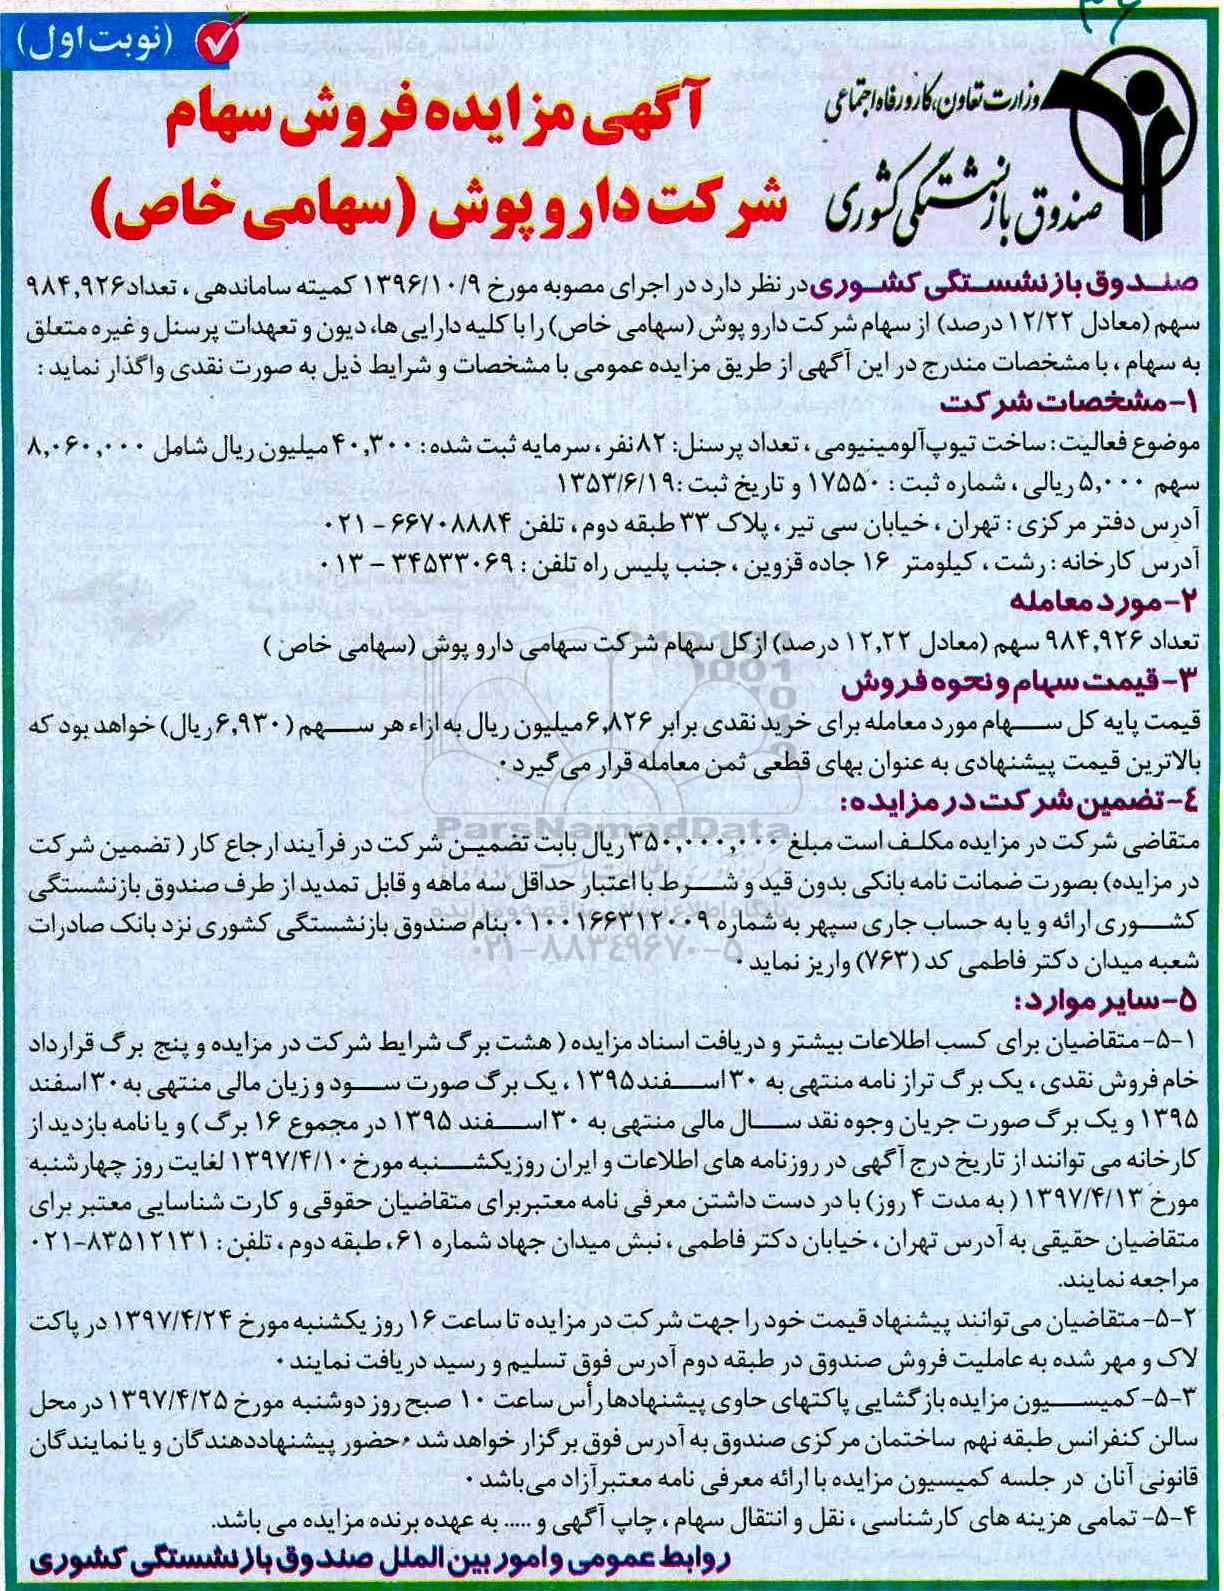 (نوبت اول)
وزارت تعاون، کار و رفاه اجتماعی
صندوق بازنشستگی کشوری
آگهی مزایده فروش سهام
شرکت دارو پوش (سهامی خاص)
صندوق بازنشستگی کشوری در نظر دارد در اجرای مصوبه مورخ ۱۳۹۶/۱۰/۹ کمیته ساماندهی ، تعداد ۹۸۴,۹۲۶
سهم (معادل ۱۲/۲۲ درصد) از سهام شرکت دارو پوش (سهامی خاص) را با کلیه دارایی ها، دیون و تعهدات پرسنل و غیره متعلق
به سهام ، با مشخصات مندرج در این آگهی از طریق مزایده عمومی با مشخصات و شرایط ذیل به صورت نقدی واگذار نماید :
۱-مشخصات شرکت
موضوع فعالیت : ساخت تیوپ آلومینیومی ، تعداد پرسنل: ۸۲ نفر ، سرمایه ثبت شده : ۴۰,۳۰۰ میلیون ریال شامل ۸,۰۶۰,۰۰۰
سهم ۵,۰۰۰ ریالی ، شماره ثبت : ۱۷۵۵۰ و تاریخ ثبت :۱۳۵۳/۶/۱۹
آدرس دفتر مرکزی : تهران ، خیابان سی تیر ، پلاک ۳۳ طبقه دوم ، تلفن ۶۶۷۰۸۸۸۴ - ۰۲۱
آدرس کارخانه : رشت ، کیلومتر ۱۶ جاده قزوین ، جنب پلیس راه تلفن : ۳۴۵۳۳۰۶۹ - ۰۱۳
۲-مورد معامله
تعداد ۹۸۴,۹۲۶ سهم (معادل ۱۲,۲۲ درصد) ازکل سهام شرکت سهامی دارو پوش (سهامی خاص )
۳-قیمت سهام و نحوه فروش
قیمت پایه کل سهام مورد معامله برای خرید نقدی برابر ۶,۸۲۶ میلیون ریال به ازاء هر سهم (۶,۹۳۰ ریال) خواهد بود که
بالاترین قیمت پیشنهادی به عنوان بهای قطعی ثمن معامله قرار می گیرد .
۴-تضمین شرکت در مزایده:
متقاضی شرکت در مزایده مکلف است مبلغ ۳۵۰,۰۰۰,۰۰۰ ریال بابت تضمین شرکت در فرآیند ارجاع کار ( تضمین شرکت
در مزایده) بصورت ضمانت نامه بانکی بدون قید و شرط با اعتبار حداقل سه ماهه و قابل تمدید از طرف صندوق بازنشستگی
کشوری ارائه و یا به حساب جاری سپهر به شماره ۰۱۰۰۱۶۶۳۱۲۰۰۹ بنام صندوق بازنشستگی کشوری نزد بانک صادرات
شعبه میدان دکتر فاطمی کد (۷۶۳) واریز نماید .
۵-سایر موارد:
۵-۱- متقاضیان برای کسب اطلاعات بیشتر و دریافت اسناد مزایده ( هشت برگ شرایط شرکت در مزایده و پنج برگ قرارداد
خام فروش نقدی ، یک برگ تراز نامه منتهی به ۳۰ اسفند ۱۳۹۵ ، یک برگ صورت سود و زیان مالی منتهی به ۳۰ اسفند
۱۳۹۵ و یک برگ صورت جریان وجوه نقد سال مالی منتهی به ۳۰ اسفند ۱۳۹۵ در مجموع ۱۶ برگ ) و یا نامه بازدید از
کارخانه می توانند از تاریخ درج آگهی در روزنامه های اطلاعات و ایران روز یکشنبه مورخ ۱۳۹۷/۴/۱۰ لغایت روز چهارشنبه
مورخ ۱۳۹۷/۴/۱۳ ( به مدت ۴ روز) با در دست داشتن معرفی نامه معتبر برای متقاضیان حقوقی و کارت شناسایی معتبر برای
متقاضیان حقیقی به آدرس تهران ، خیابان دکتر فاطمی ، نبش میدان جهاد شماره ۶۱ ، طبقه دوم ، تلفن : ۸۳۵۱۲۱۳۱-۰۲۱
مراجعه نمایند.
۵-۲- متقاضیان می توانند پیشنهاد قیمت خود را جهت شرکت در مزایده تا ساعت ۱۶ روز یکشنبه مورخ ۱۳۹۷/۴/۲۴ در پاکت
لاک و مهر شده به عاملیت فروش صندوق در طبقه دوم آدرس فوق تسلیم و رسید دریافت نمایند .
۵-۳- کمیسیون مزایده بازگشایی پاکتهای حاوی پیشنهادها رأس ساعت ۱۰ صبح روز دوشنبه مورخ ۱۳۹۷/۴/۲۵ در محل
سالن کنفرانس طبقه نهم ساختمان مرکزی صندوق به آدرس فوق برگزار خواهد شد . حضور پیشنهاددهندگان و یا نمایندگان
قانونی آنان در جلسه کمیسیون مزایده با ارائه معرفی نامه معتبر آزاد می باشد .
۵-۴- تمامی هزینه های کارشناسی ، نقل و انتقال سهام ، چاپ آگهی و ..... به عهده برنده مزایده می باشد.
روابط عمومی و امور بین الملل صندوق بازنشستگی کشوری
ParsNamadData
۰۲۱-۸۸۳۴۹۶۷۰-۵